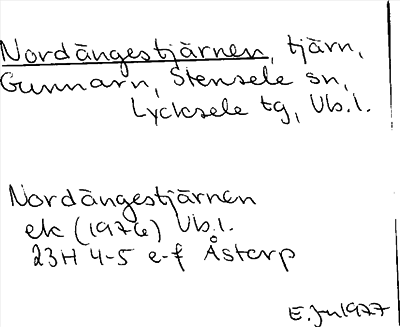 Nordängestjärnen, tjärn,
Gunnarn, Stensele sn,
Lycksele tg, Vb.l.
Nordängestjärnen
ek (1976) Vb.l.
23H 4-5 e-f Åstorp
E.Ju 1977